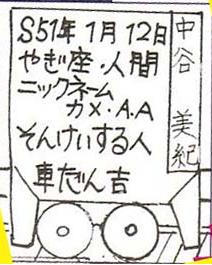 中谷 美紀
S51年 1月 12日
やぎ座・人間
ニックネーム
カメ・A.A
そんけいする人
車だん吉